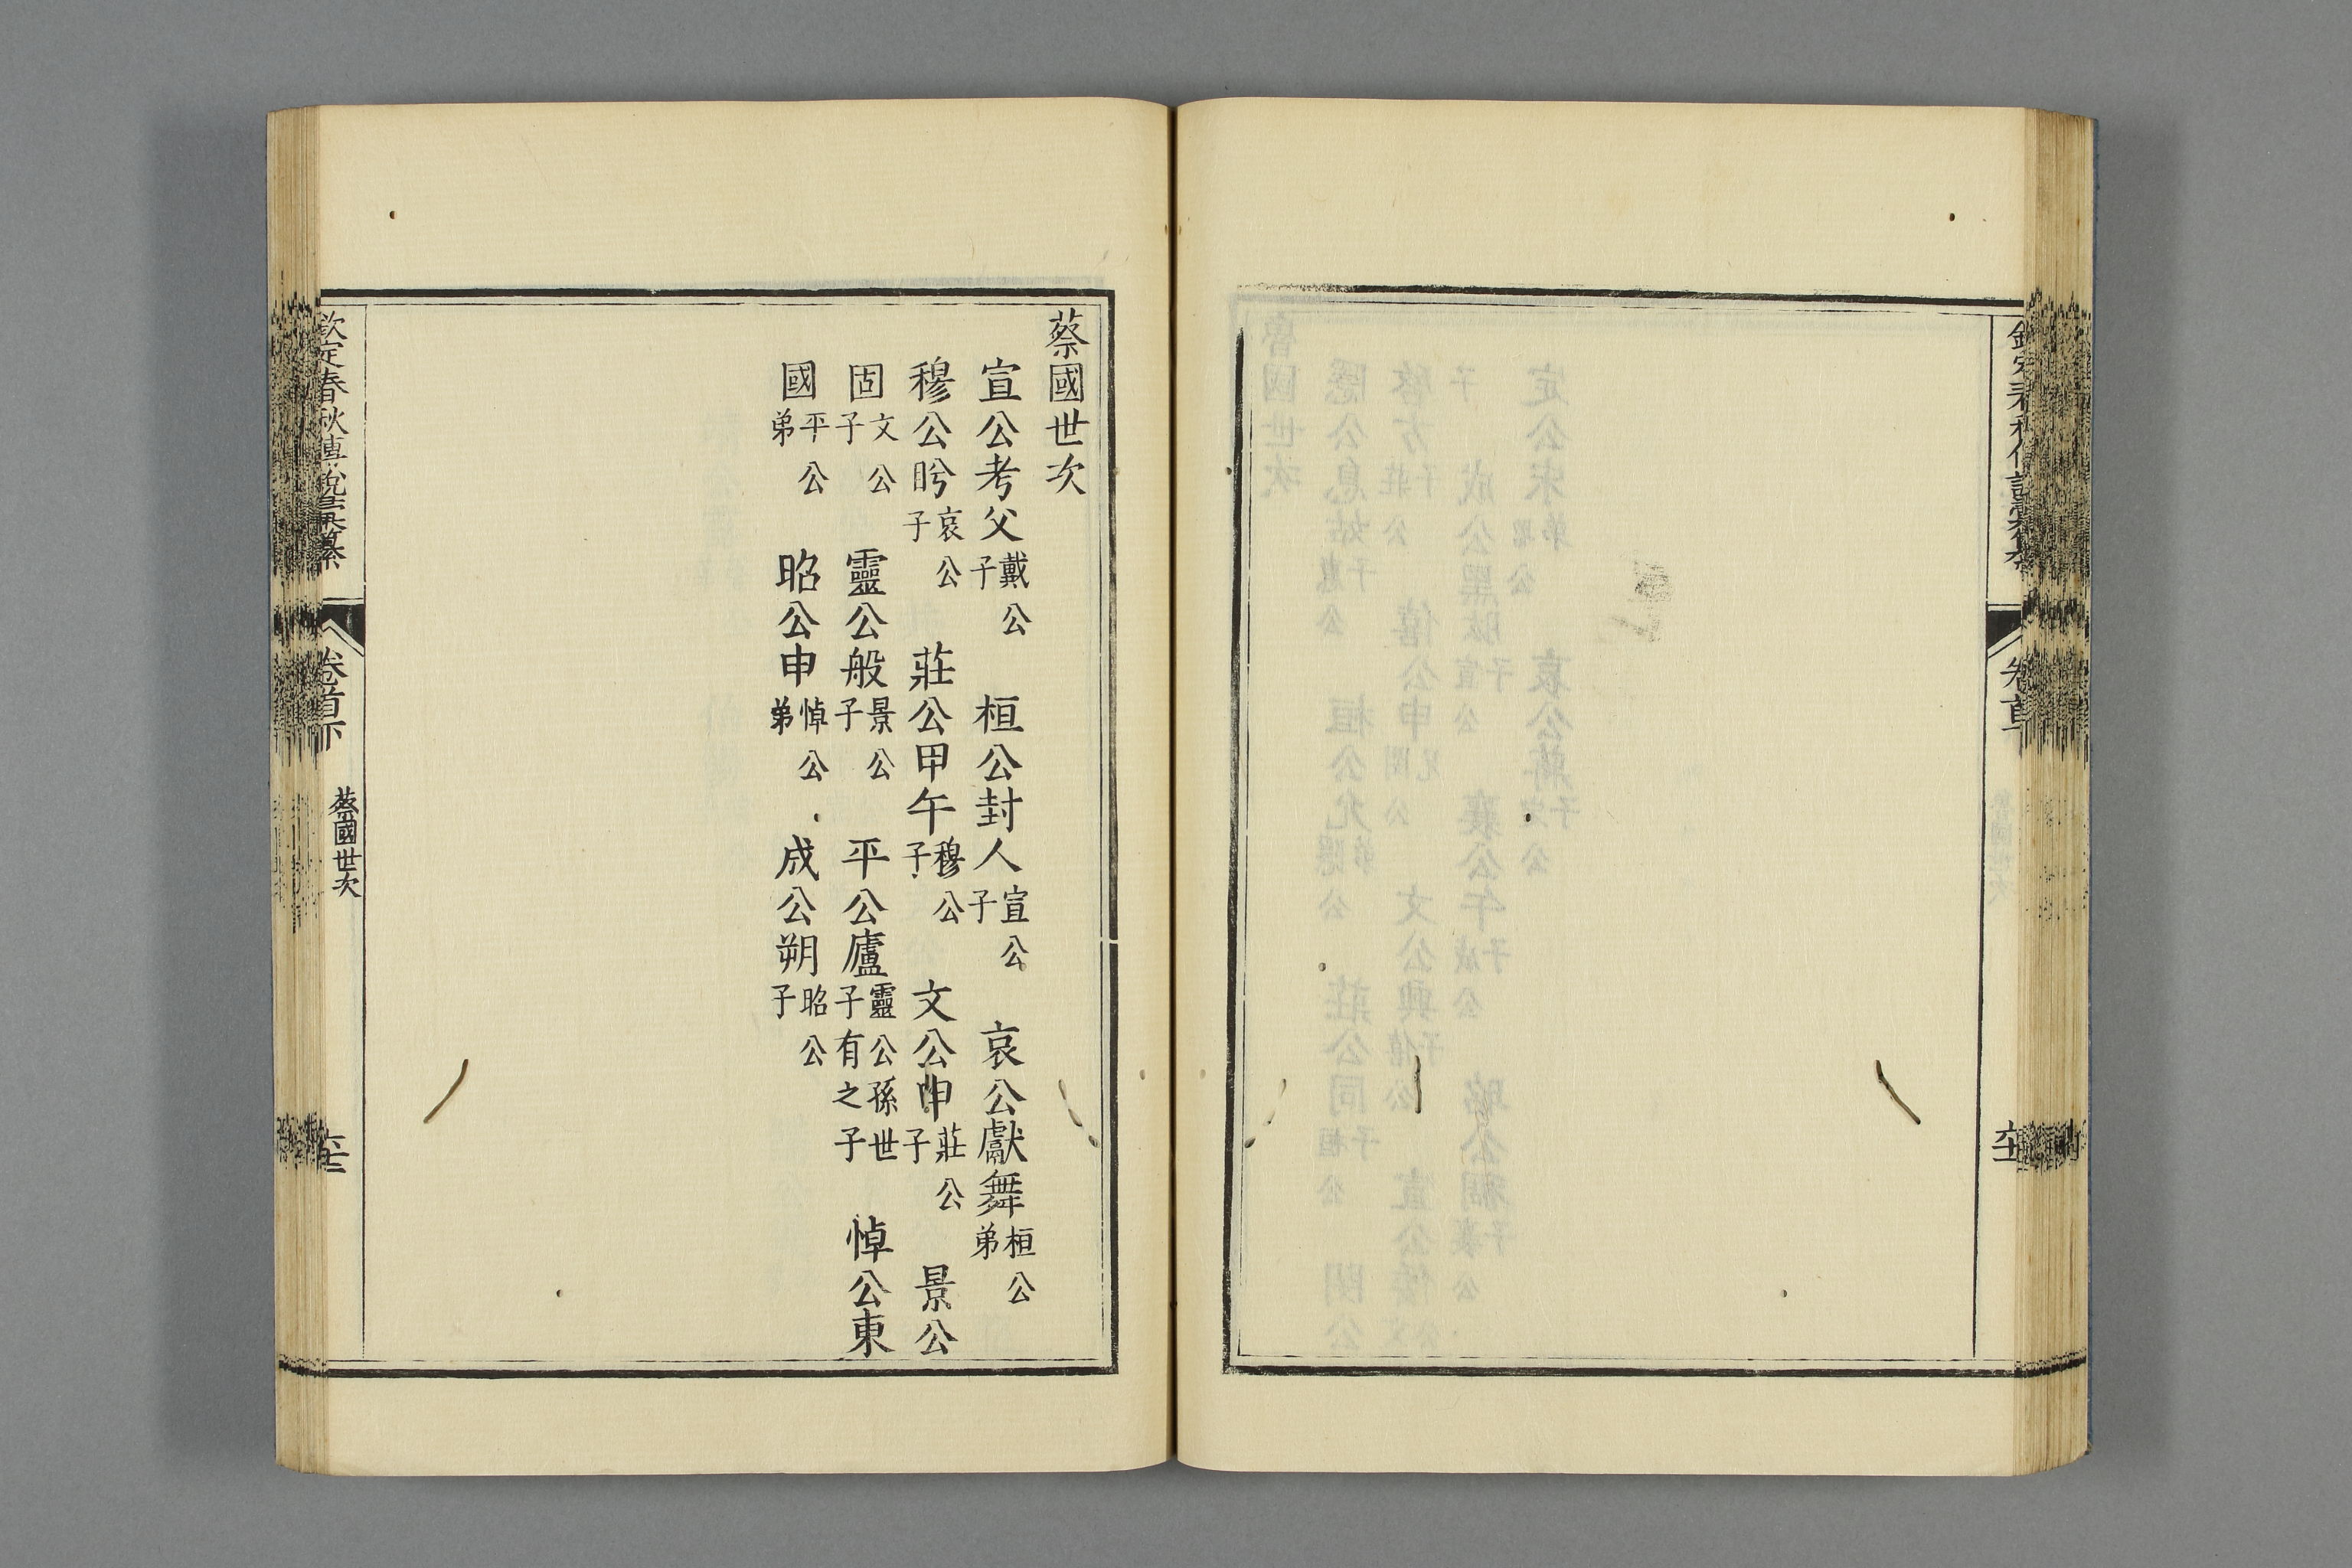 蔡國世次
宣公考父戴公子　桓公封人宣公子　哀公獻舞桓公弟
穆公肹哀公子　莊公甲午穆公子　文公申莊公子　景公
固文公子　靈公般景公子　平公廬靈公孫世子有之子　悼公東
國平公弟　昭公申悼公弟　成公朔昭公子
欽定春秋傳說彙纂　卷首下　蔡國世次